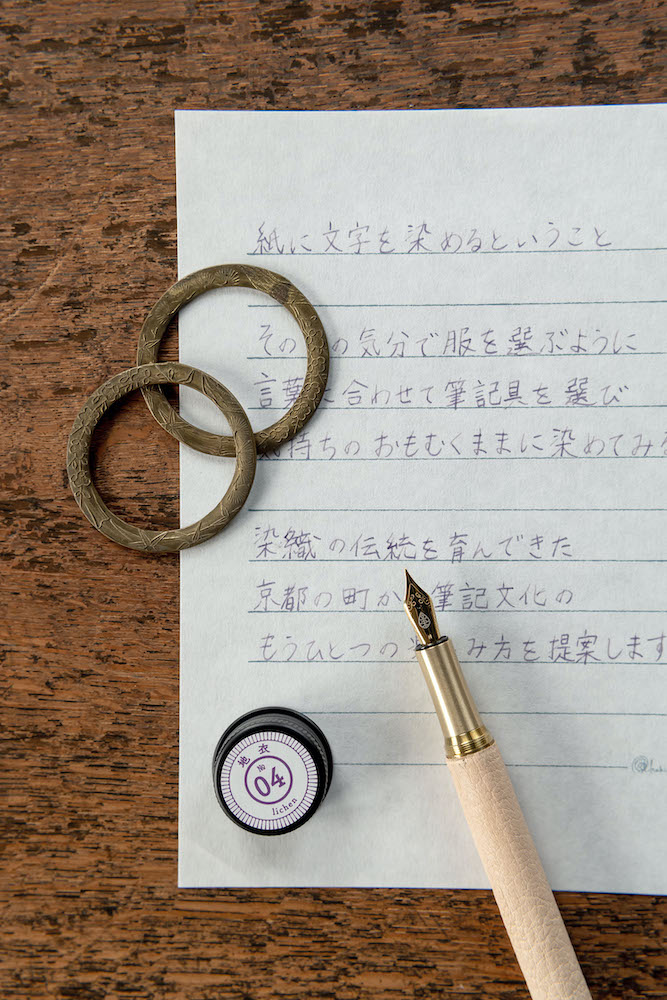 紙に文字を染めるということ
その の気分で服を選ぶように
言葉に合わせて筆記具を選び
気持ちのおもむくままに染めてみる
染織の伝統を育んできた
京都の町か 筆記文化の
もうひとつの み方を提案します
地衣
№
04
lichen